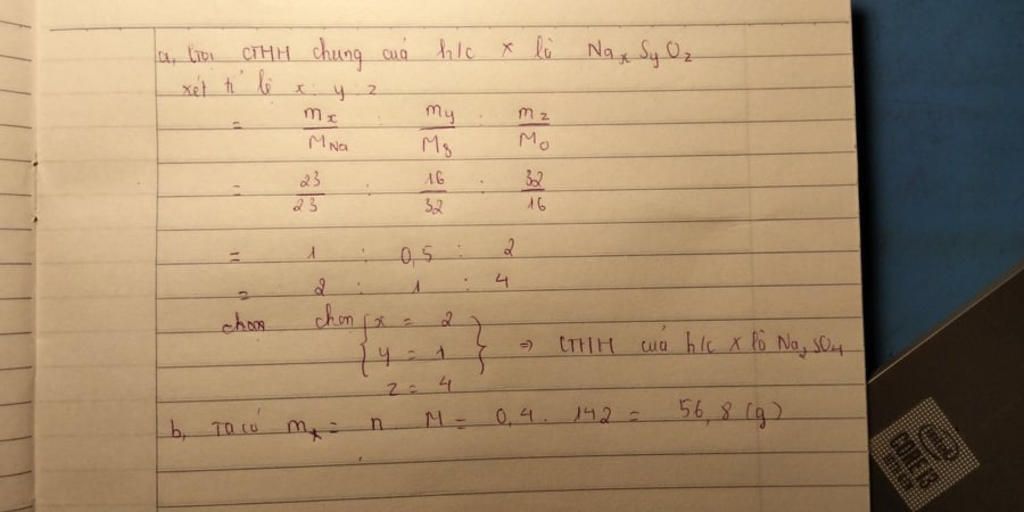 a, Gọi CTHH chung của h/c X là NaxSyOz
xét tỉ lệ x : y : z
= mx/MNa : my/MS : mz/MO
= 23/23 : 16/32 : 32/16
= 1 : 0,5 : 2
= 2 : 1 : 4
chọn chọn { x = 2
y = 1 } => CTHH của h/c X là Na2SO4
z = 4
b, Ta có mx = n. M = 0,4. 142 = 56,8 (g)
CORE i3